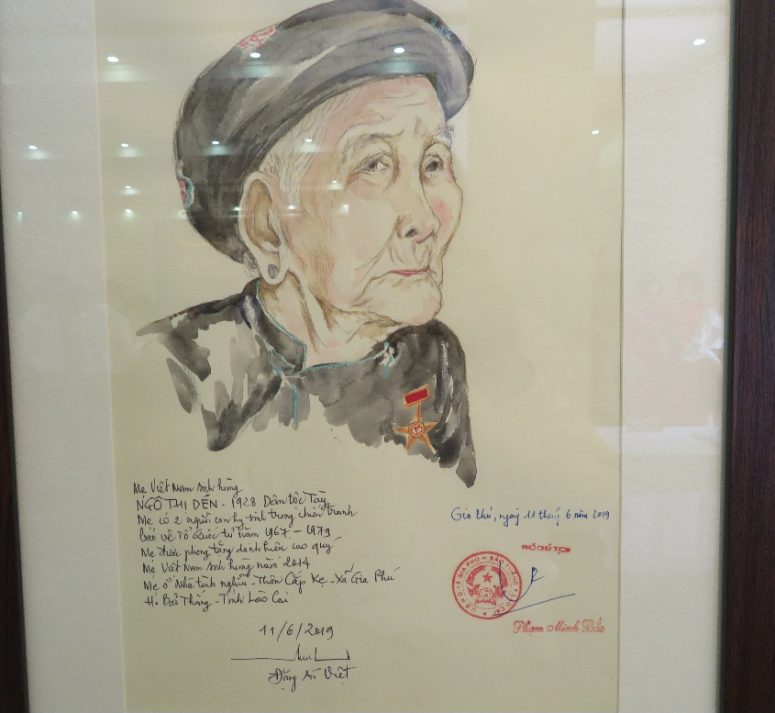 Mẹ Việt Nam anh hùng
NGÔ THỊ DẾN - 1928 Dân tộc Tày
Mẹ có 2 người con hy sinh trong chiến tranh
bảo vệ Tổ Quốc từ năm 1967 - 1979
Mẹ được phong tặng danh hiệu cao quý
Mẹ Việt Nam anh hùng năm 2014
Mẹ ở Nhà tình nghĩa - Thôn Cáp Kẹ - Xã Gia Phú
H. Bảo Thắng - Tỉnh Lào Cai
11/6/2019
Đặng Ái Việt
Gia Phú, ngày 11 tháng 6 năm 2019
PHÓ CHỦ TỊCH
Phạm Minh Bắc